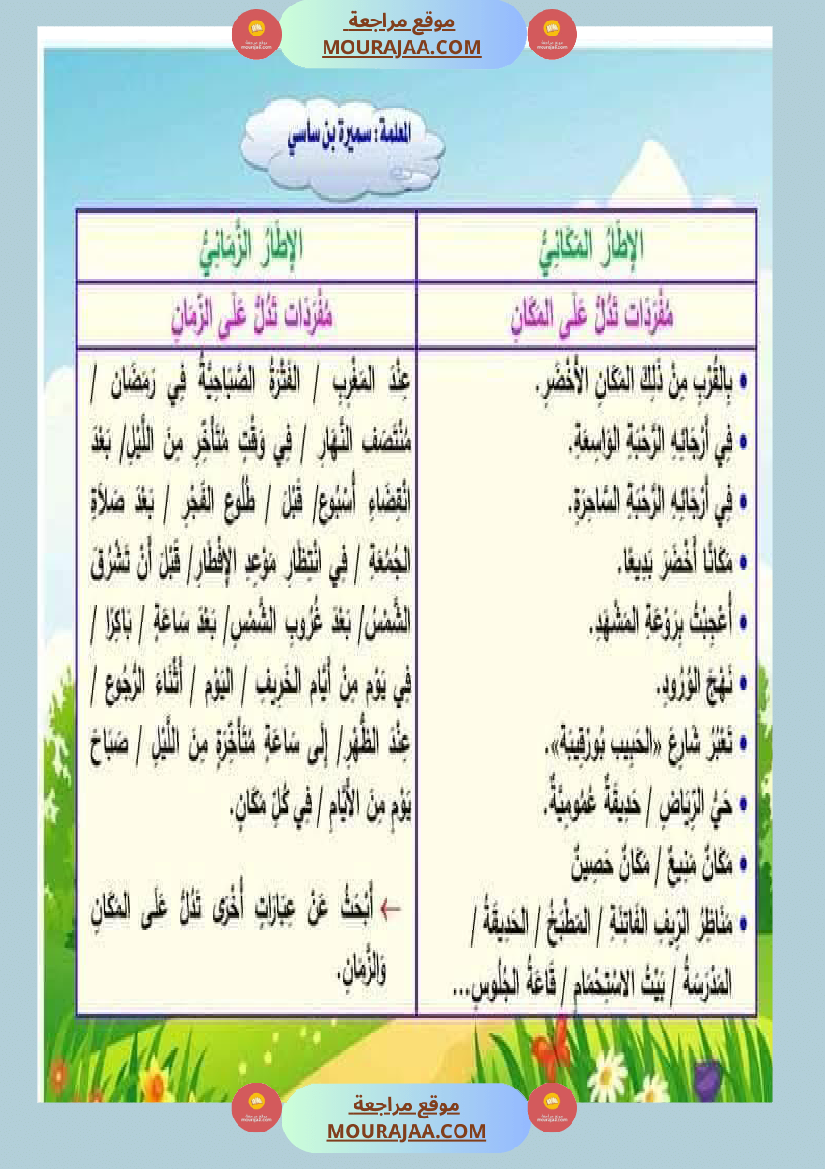 موقع مراجعة
MOURAJAA.COM
المعلمة : سميرة بن ساسي
الإِطَارُ المَكَانِيُّ
مُفْرَدَات تَدُلُّ عَلَى المَكَانِ
• بِالقُرْبِ مِنْ ذَلِكَ المَكَانِ الأَخْضَرِ.
• فِي أَرْجَائِهِ الرَّحْبَةِ الوَاسِعَةِ.
• فِي أَرْجَائِهِ الرَّحْبَةِ السَّاحِرَةِ.
• مَكَانًا أَخْضَرَ بَدِيعًا.
• أُعْجِبْتُ بِرَوْعَةِ المَشْهَدِ.
• نَهْجَ الوُرُودِ.
• تَعْبُرُ شَارِعَ «الحَبِيب بُورْقِيبَة».
• حَيُّ الرِّيَاضِ / حَدِيقَةٌ عُمُومِيَّةٌ.
• مَكَانٌ مَنِيعٌ / مَكَانٌ حَصِينٌ
• مَنَاظِرُ الرِّيفِ الفَاتِنَةِ / المَطْبَخُ / الحَدِيقَةُ /
المَدْرَسَةُ / بَيْتُ الاسْتِحْمَامِ / قَاعَةُ الجُلُوسِ...
الإِطَارُ الزَّمَانِيُّ
مُفْرَدَات تَدُلُّ عَلَى الزَّمَانِ
عِنْدَ المَغْرِبِ / الفَتْرَةُ الصَّبَاحِيَّةُ فِي رَمَضَان /
مُنْتَصَف النَّهَارِ / فِي وَقْتٍ مُتَأَخِّرٍ مِنَ اللَّيْلِ/ بَعْدَ
انْقِضَاءِ أُسْبُوع/ قَبْلَ / طُلُوع الفَجْرِ / بَعْدَ صَلاَةِ
الجُمُعَةِ / فِي انْتِظَارِ مَوْعِدِ الإِفْطَارِ/ قَبْلَ أَنْ تَشْرُقَ
الشَّمْسُ/ بَعْدَ غُرُوبِ الشَّمْسِ/ بَعْدَ سَاعَةٍ / بَاكِرًا /
فِي يَوْم مِنْ أَيَّام الخَرِيفِ / اليَوْم / أَثْنَاءَ الرُّجُوع /
عِنْدَ الظُّهْرِ/ إِلَى سَاعَةٍ مُتَأَخِّرَةٍ مِنَ اللَّيْلِ / صَبَاحَ
يَوْمٍ مِنَ الأَيَّامِ / فِي كُلِّ مَكَانٍ.
← أَبْحَثُ عَنْ عِبَارَاتٍ أُخْرَى تَدُلُّ عَلَى المَكَانِ
وَالزَّمَانِ.
موقع مراجعة
MOURAJAA.COM